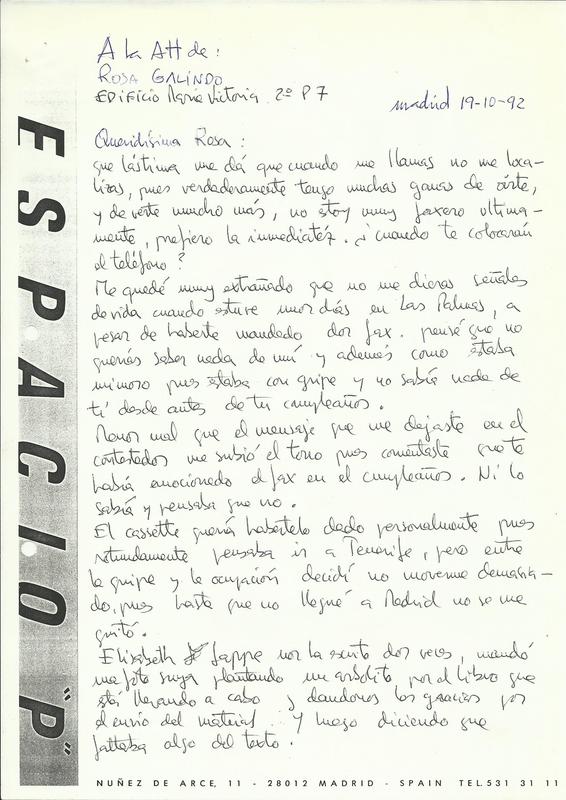 A la Att de:
ROSA GALINDO
EDIFICIO María Victoria 2º P7
madrid 19-10-92
Queridísima Rosa:
que lástima me dá que cuando me llamas no me loca-
lizas, pues verdaderamente tengo muchas ganas de oirte,
y de verte mucho más, no estoy muy faxero ultima-
mente, prefiero la inmediatéz. ¿cuando te colocarán
el teléfono?
Me quedé muy extrañado que no me dieras señales
de vida cuando estuve unos días en Las Palmas, a
pesar de haberte mandado dos fax. pensé que no
querías saber nada de mí y además como estaba
mimoso pues estaba con gripe y no sabía nada de
ti desde antes de tu cumpleaños.
Menos mal que el mensaje que me dejaste en el
contestador me subió el tono pues comentaste que te
había emocionado el fax en el cumpleaños. Ni lo
sabía y pensaba que no.
El cassette quería habertelo dado personalmente pues
rotundamente pensaba ir a Tenerife, pero entre
la gripe y la ocupación decidí no moverme demasia-
do, pues hasta que no llegué a Madrid no se me
quitó.
Elisabeth Jappe nos ha escrito dos veces, mandó
una foto suya plantando un arbolito, por el libro que
está llevando a cabo y dandonos las gracias por
el envio del material. Y luego diciendo que
faltaba algo del texto.
ESPACIO "P"
NUÑEZ DE ARCE, 11 - 28012 MADRID - SPAIN TEL.531 31 11